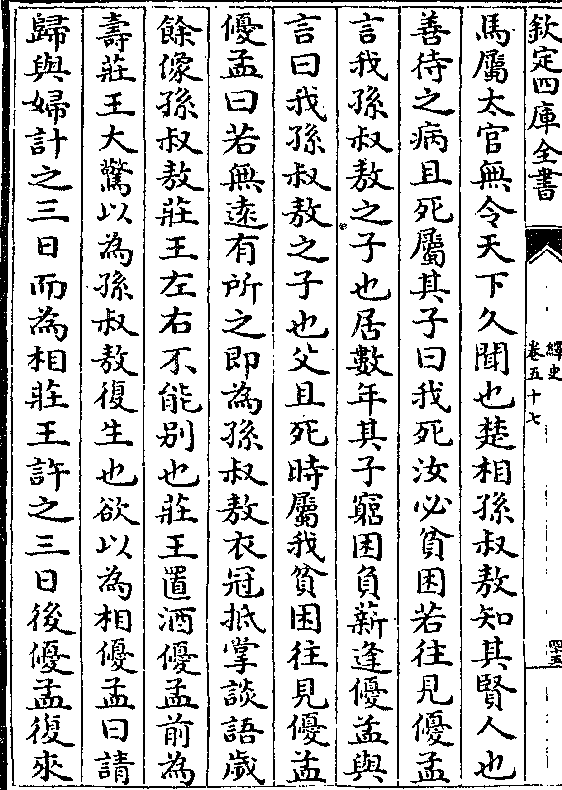 欽定四庫全書
繹史
卷五十七
四十五
馬屬太官無令天下久聞也楚相孫叔敖知其賢人也
善待之病且死屬其子曰我死汝必貧困若往見優孟
言我孫叔敖之子也居數年其子窮困負薪逢優孟與
言曰我孫叔敖之子也父且死時屬我貧困往見優孟
優孟曰若無遠有所之即為孫叔敖衣冠抵掌談語歲
餘像孫叔敖莊王左右不能别也莊王置酒優孟前為
壽莊王大驚以為孫叔敖復生也欲以為相優孟曰請
歸與婦計之三日而為相莊王許之三日後優孟復來